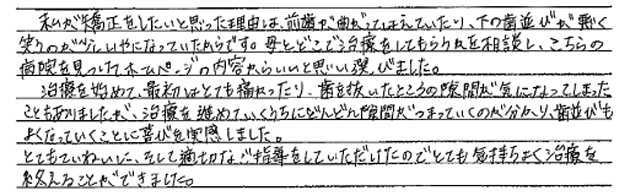 私が矯正をしたいと思った理由は、前歯が曲がってはえていたり、下の歯並びが悪く
笑うのが少しいやになっていたからです。母とどこで治療をしてもらうかを相談し、こちらの
病院を見つけてホームページの内容からいいと思い選びました。
治療を始めて、最初はとても痛かったり、歯を抜いたところの隙間が気になってしまった
こともありましたが、治療を進めていくうちにどんどん隙間がつまっていくのが分かり、歯並びも
よくなっていくことに喜びを実感しました。
とてもていねいに、そして適切なご指導をしていただけたのでとても気持ちよく治療を
終えることができました。